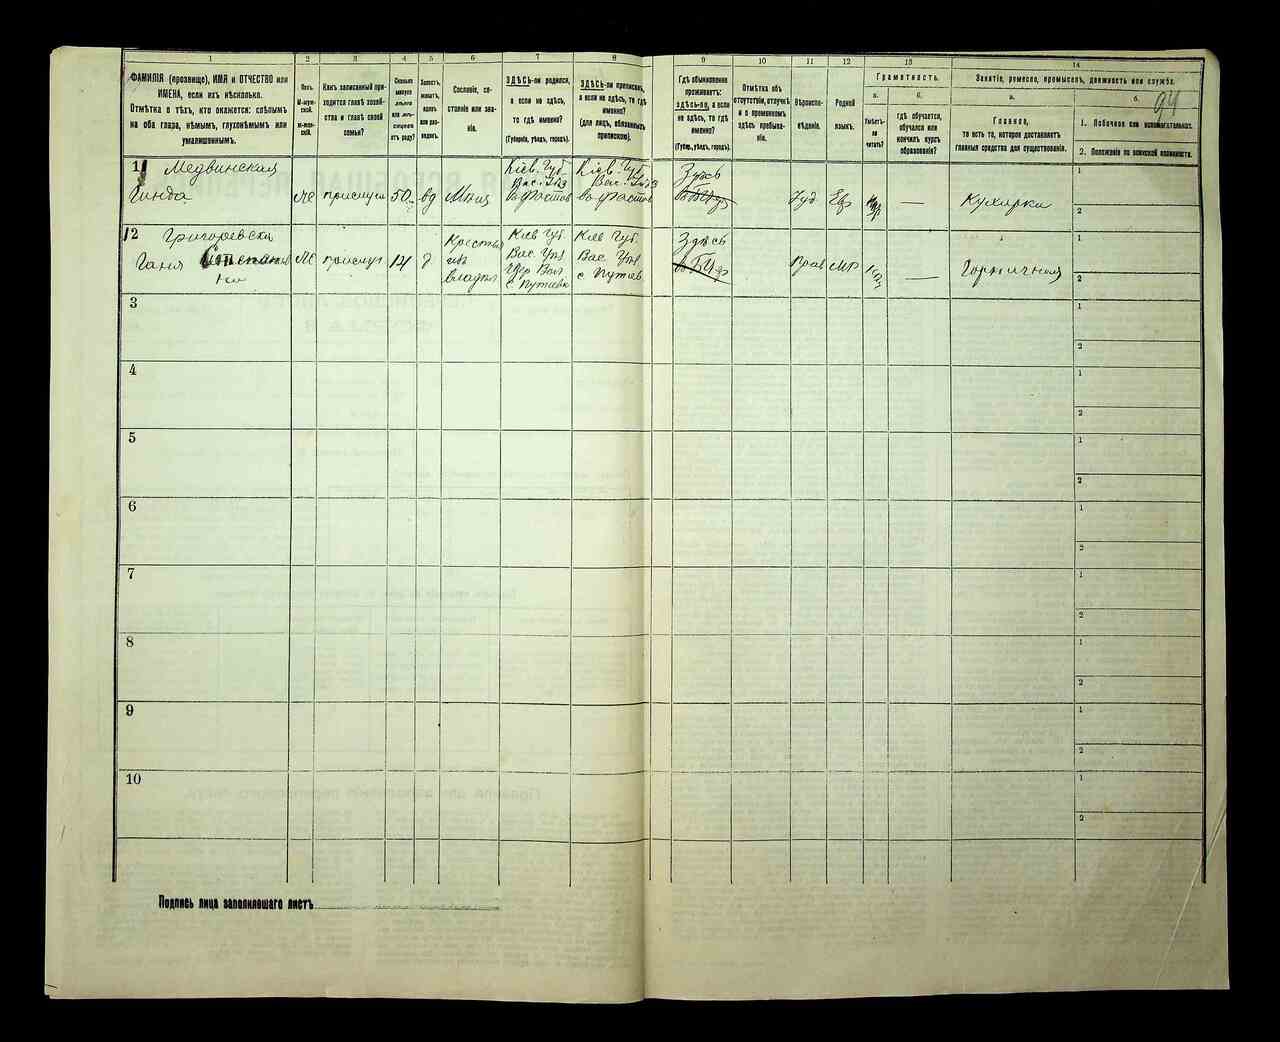 1 2 3 4 5 6 7 8 9 10 11 12 13 14
ФАМИЛІЯ (прозвище), ИМЯ и ОТЧЕСТВО или
ИМЕНА, если ихъ нѣсколько.
Отмѣтка о тѣхъ, кто окажется: слѣпымъ
на оба глаза, нѣмымъ, глухонѣмымъ или
умалишеннымъ.
Полъ.
М-муж-
ской.
ж-жен-
скій.
Какъ записанный при-
ходится главѣ хозяй-
ства и главѣ своей
семьи?
Сколько
минуло
лѣтъ
или мѣ-
сяцевъ
отъ роду?
Холостъ,
женатъ,
вдовъ
или раз-
веденъ.
Сословіе, со-
стояніе или зва-
ніе.
ЗДѢСЬ-ли родился,
а если не здѣсь,
то гдѣ именно?
(Губернія, уѣздъ, городъ).
ЗДѢСЬ-ли приписанъ,
а если не здѣсь, то гдѣ
именно?
(для лицъ, обязанныхъ
припискою).
Гдѣ обыкновенно
проживаетъ:
здѣсь-ли, а если
не здѣсь, то гдѣ
именно?
(Губер., уѣздъ, городъ).
Отмѣтка объ
отсутствіи, отлучкѣ
и о временномъ
здѣсь пребыва-
ніи.
Вѣроиспо-
вѣданіе.
Родной
языкъ.
Грамотность.
а. б.
Умѣетъ-
ли
читать?
гдѣ обучается,
обучался или
кончилъ курсъ
образованія?
Занятіе, ремесло, промыселъ, должность или служба.
а. б.
94
Главное,
то есть то, которое доставляетъ
главныя средства для существованія.
1. Побочное или вспомогательное.
2. Положеніе по воинской повинности.
11 Медвинская
Гинда
Ж прислуга 50 вд
Кіев. Губ.
Вас. Уѣз
Кіев. Губ.
Вас. Уѣз
Здѣсь
Іуд Евр — Кухарка
1
2
12 Григоревска
Ганя
Ж 14 д
Кіев Губ.
Вас. Уѣз
с. Путаевк
Кіев Губ.
Вас Уѣз
с Путаев
Здѣсь
Прав МР — Горничная
1
2
3
1
2
4
1
2
5
1
2
6
1
2
7
1
2
8
1
2
9
1
2
10
1
2
Подпись лица заполнявшаго листъ